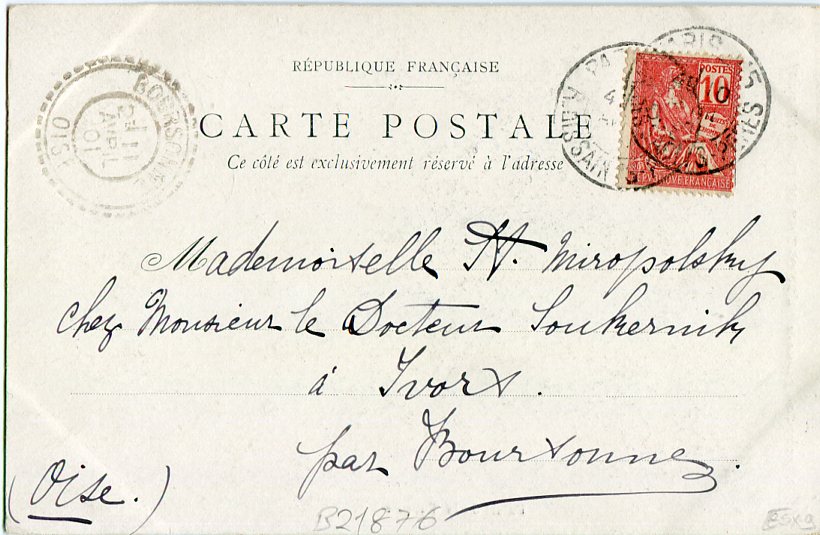 RÉPUBLIQUE FRANÇAISE
CARTE POSTALE
Ce côté est exclusivement réservé à l'adresse
POSTES
10
BOURSONNE
11
AVRIL
01
OISE
PARIS
Mademoiselle N. Miropolsky
chez Monsieur le Docteur Soukernik
à Ivors.
par Boursonne.
(Oise.)
B21876